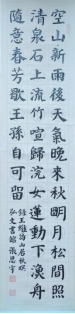 空山新雨後天氣晚來秋明月松間照
清泉石上流竹喧歸浣女蓮動下漁舟
隨意春芳歇王孫自可留
王維詩山居秋暝
弘文書館張思宇